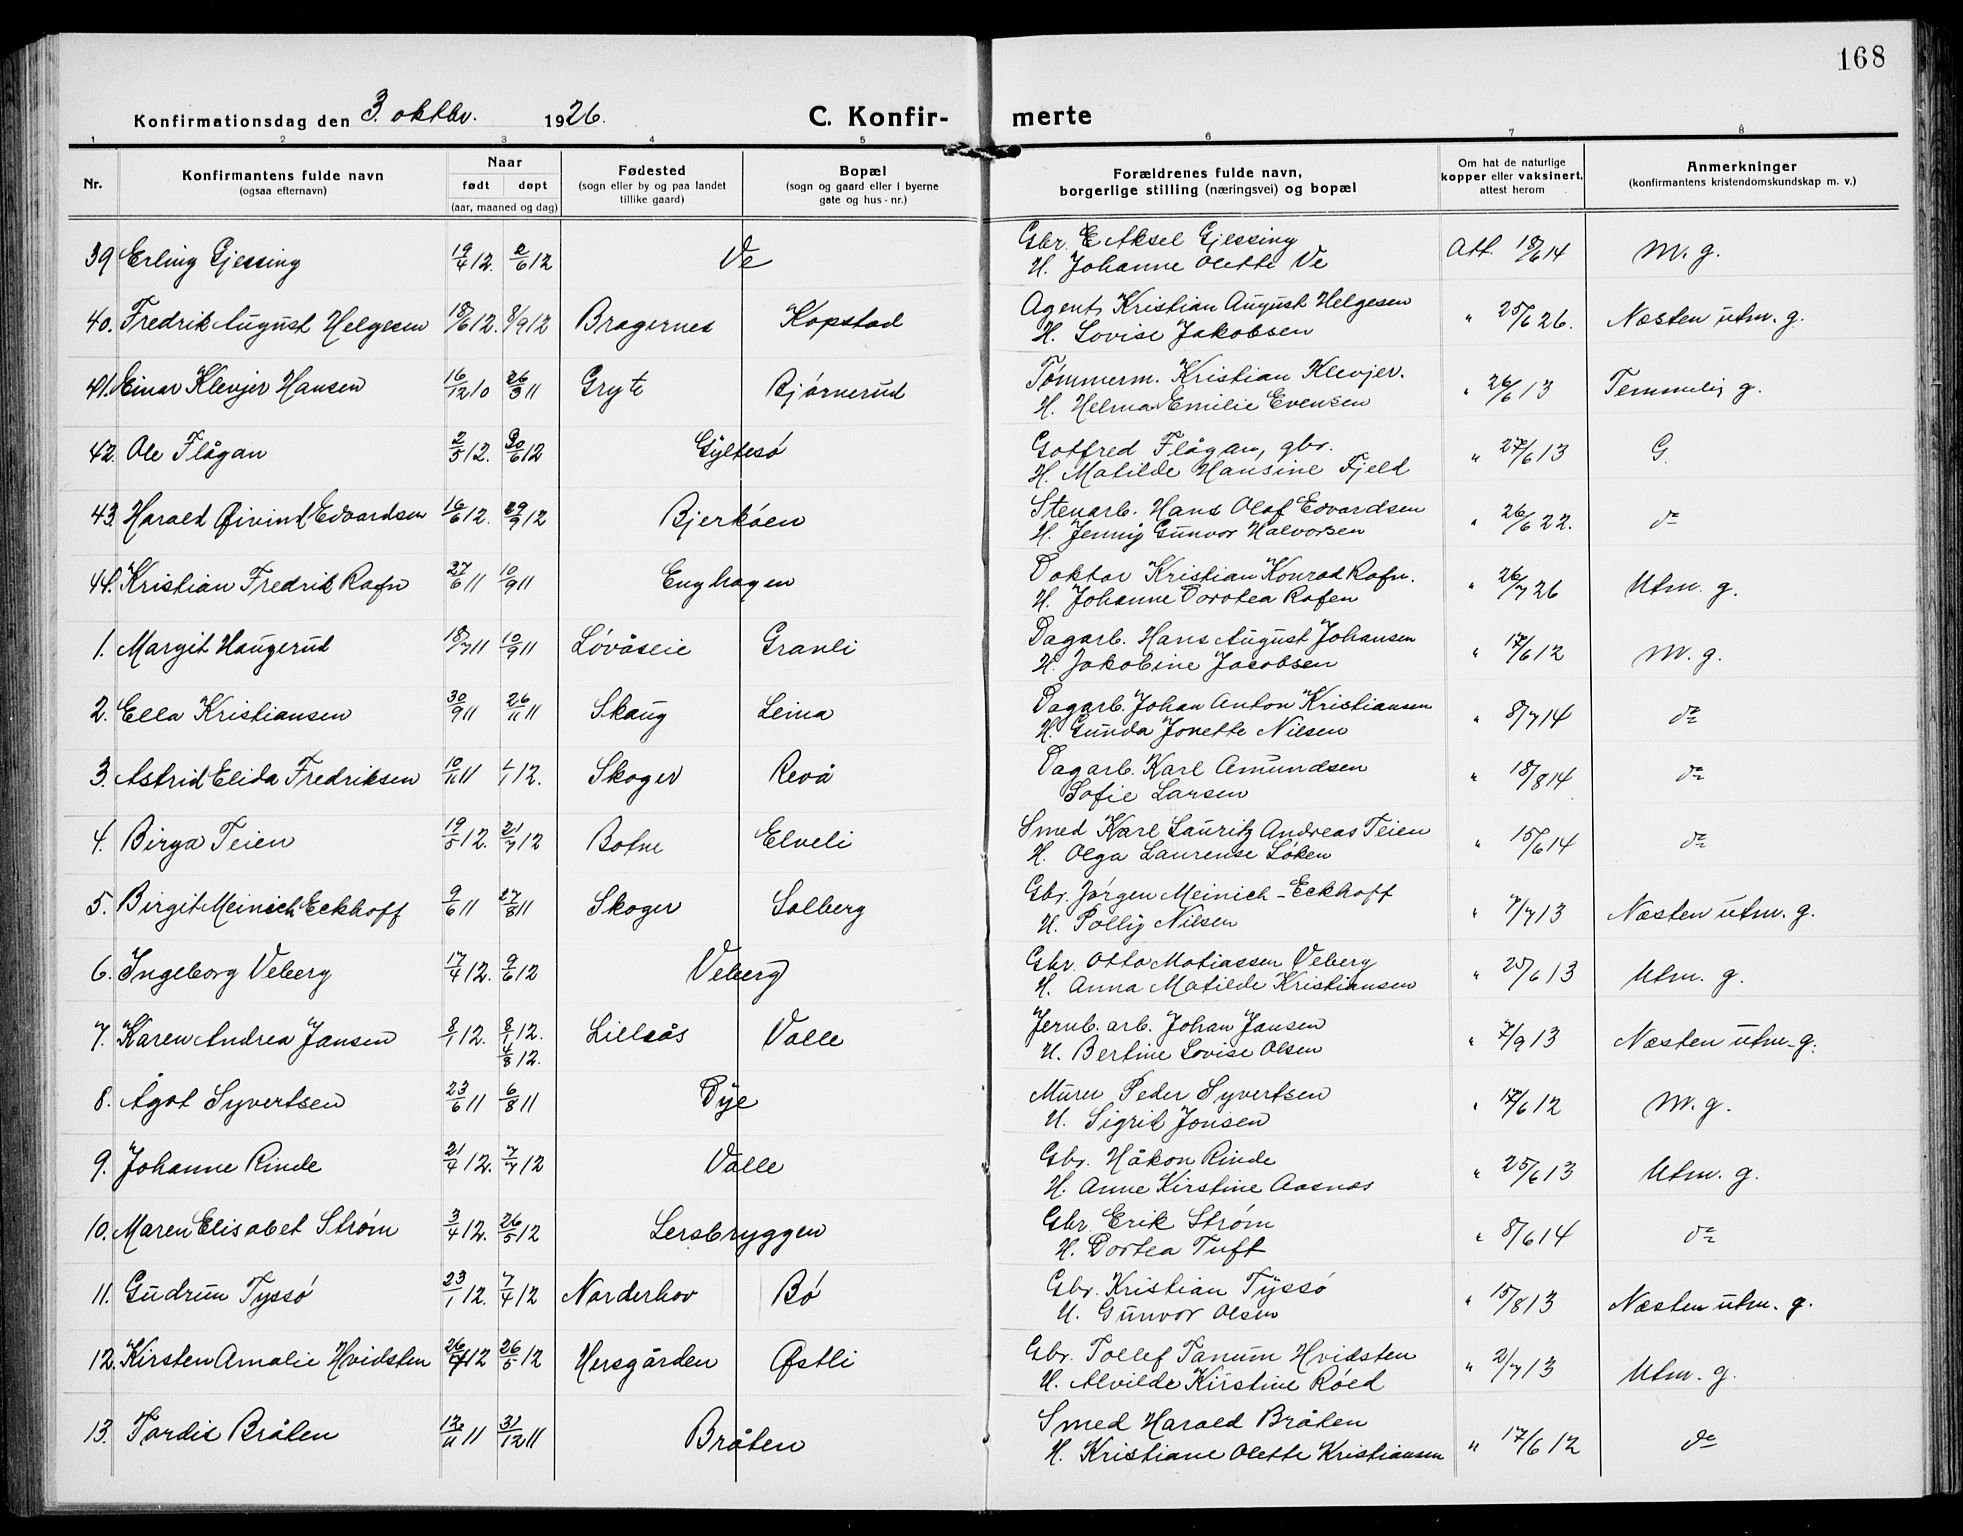 168
Konfirmationsdag den 3. oktbr. 1926. C. Konfirmerte
1 2 3 4 5 6 7 8
Nr. Konfirmantens fulde navn (ogsaa efternavn) Naar født døpt (aar, maaned og dag) Fødested (sogn eller by og paa landet tillike gaard) Bopæl (sogn og gaard eller i byerne gate og hus-nr.) Forældrenes fulde navn, borgerlige stilling (næringsvei) og bopæl Om hat de naturlige kopper eller vaksinert, attest herom Anmerkninger (konfirmantens kristendomskundskap m. v.)
39 Erling Gjessing 19/4 12. 2/6 12 Ve Gbr. E Aksel Gjessing Att. 18/6 14 M. g.
H. Johanne Olette Ve
40. Fredrik August Helgesen 18/6 12. 8/9 12 Bragernes Kopstad Agent Kristian August Helgesen " 25/6 26. Næsten utm. g.
H. Lovise Jakobsen
41. Einar Klevjer Hansen 16/12 10 26/3 11 Gryte Bjørnerud Tømmerm. Kristian Klevjer. " 26/6 13 Temmelig g.
H. Helma Emilie Evensen
42. Ole Flågan 2/5 12. 30/6 12 Gyltesø Gotfred Flågan, gbr. " 27/6 13 G.
H. Matilde Hansine Fjeld
43. Harald Øivind Edvardsen 16/6 12. 29/9 12 Bjerkøen Stenarb. Hans Olaf Edvardsen " 26/6 22. do
H. Jenny Gunvor Halvorsen
44. Kristian Fredrik Rafn 27/6 11 10/9 11 Enghagen Doktor Kristian Konrad Rafn. " 26/7 26 Utm. g.
H. Johanne Dorotea Rafen
1. Margit Haugerud 18/7 11 10/9 11 Løvåseie Granli Dagarb. Hans August Johansen " 17/6 12 M. g.
H. Jakobine Jacobsen
2. Ella Kristiansen 30/9 11 26/11 11 Skaug Leina Dagarb. Johan Anton Kristiansen " 8/7 14 do
H. Gunda Jonette Nilsen
3. Astrid Elida Fredriksen 10/11 11 1/1 12. Skoger Revå Dagarb. Karl Amundsen " 18/8 14 do
Sofie Larsen
4. Birga Teien 19/5 12. 21/7 12 Botne Elveli Smed Karl Lauritz Andreas Teien " 15/6 14 do
H. Olga Laurense Løken
5. Birgit Meinich Eckhoff 9/6 11 27/8 11 Skoger Solberg Gbr. Jørgen Meinich-Eckhoff " 7/7 13 Næsten utm. g.
H. Polly Nilsen
6. Ingeborg Veberg 17/4 12. 9/6 12 Veberg Gbr. Otto Matiassen Veberg " 25/6 13 Utm. g.
H. Anna Matilde Kristiansen
7. Karen Andrea Jansen 8/1 12. 8/1 12. 4/8 12. Lilleås Valle Jernb. arb. Johan Jansen " 7/9 13 Næsten utm. g.
H. Bertine Lovise Olsen
8. Ågot Syvertsen 23/6 11 6/8 11 Dye Murer Peder Syvertsen " 17/6 12 M. g.
H. Sigrid Jonsen
9. Johanne Rinde 21/4 12. 7/7 12 Valle Gbr. Håkon Rinde " 25/6 13 Utm. g.
H. Anne Kirstine Aasnas
10. Maren Elisabet Strøm 3/4 12. 26/5 12 Lersbryggen Gbr. Erik Strøm " 8/6 14 do
H. Dortea Tuft
11. Gudrun Tyssø 23/1 12. 7/4 12 Norderhov Bø Gbr. Kristian Tyssø " 15/8 13 Næsten utm. g.
H. Gunvor Olsen
12. Kirsten Amalie Hvidsten 26/4 12 26/5 12 Hersgården Østli Gbr. Tollef Tanum Hvidsten " 2/7 13 Utm. g.
H. Alvilde Kirstine Røed
13. Tordis Bråten 12/11 11 31/12 11 Bråten Smed Harald Bråten " 17/6 12 do
H. Kristiane Olette Kristiansen